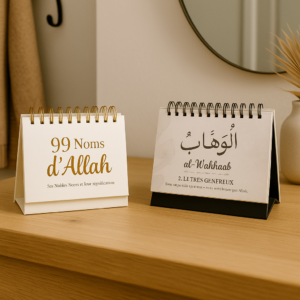 99 Noms
d'Allah
Ses Nobles Noms et leur signification
الْوَهَّابُ
al-Wahhaab
LE TRÈS GÉNÉREUX